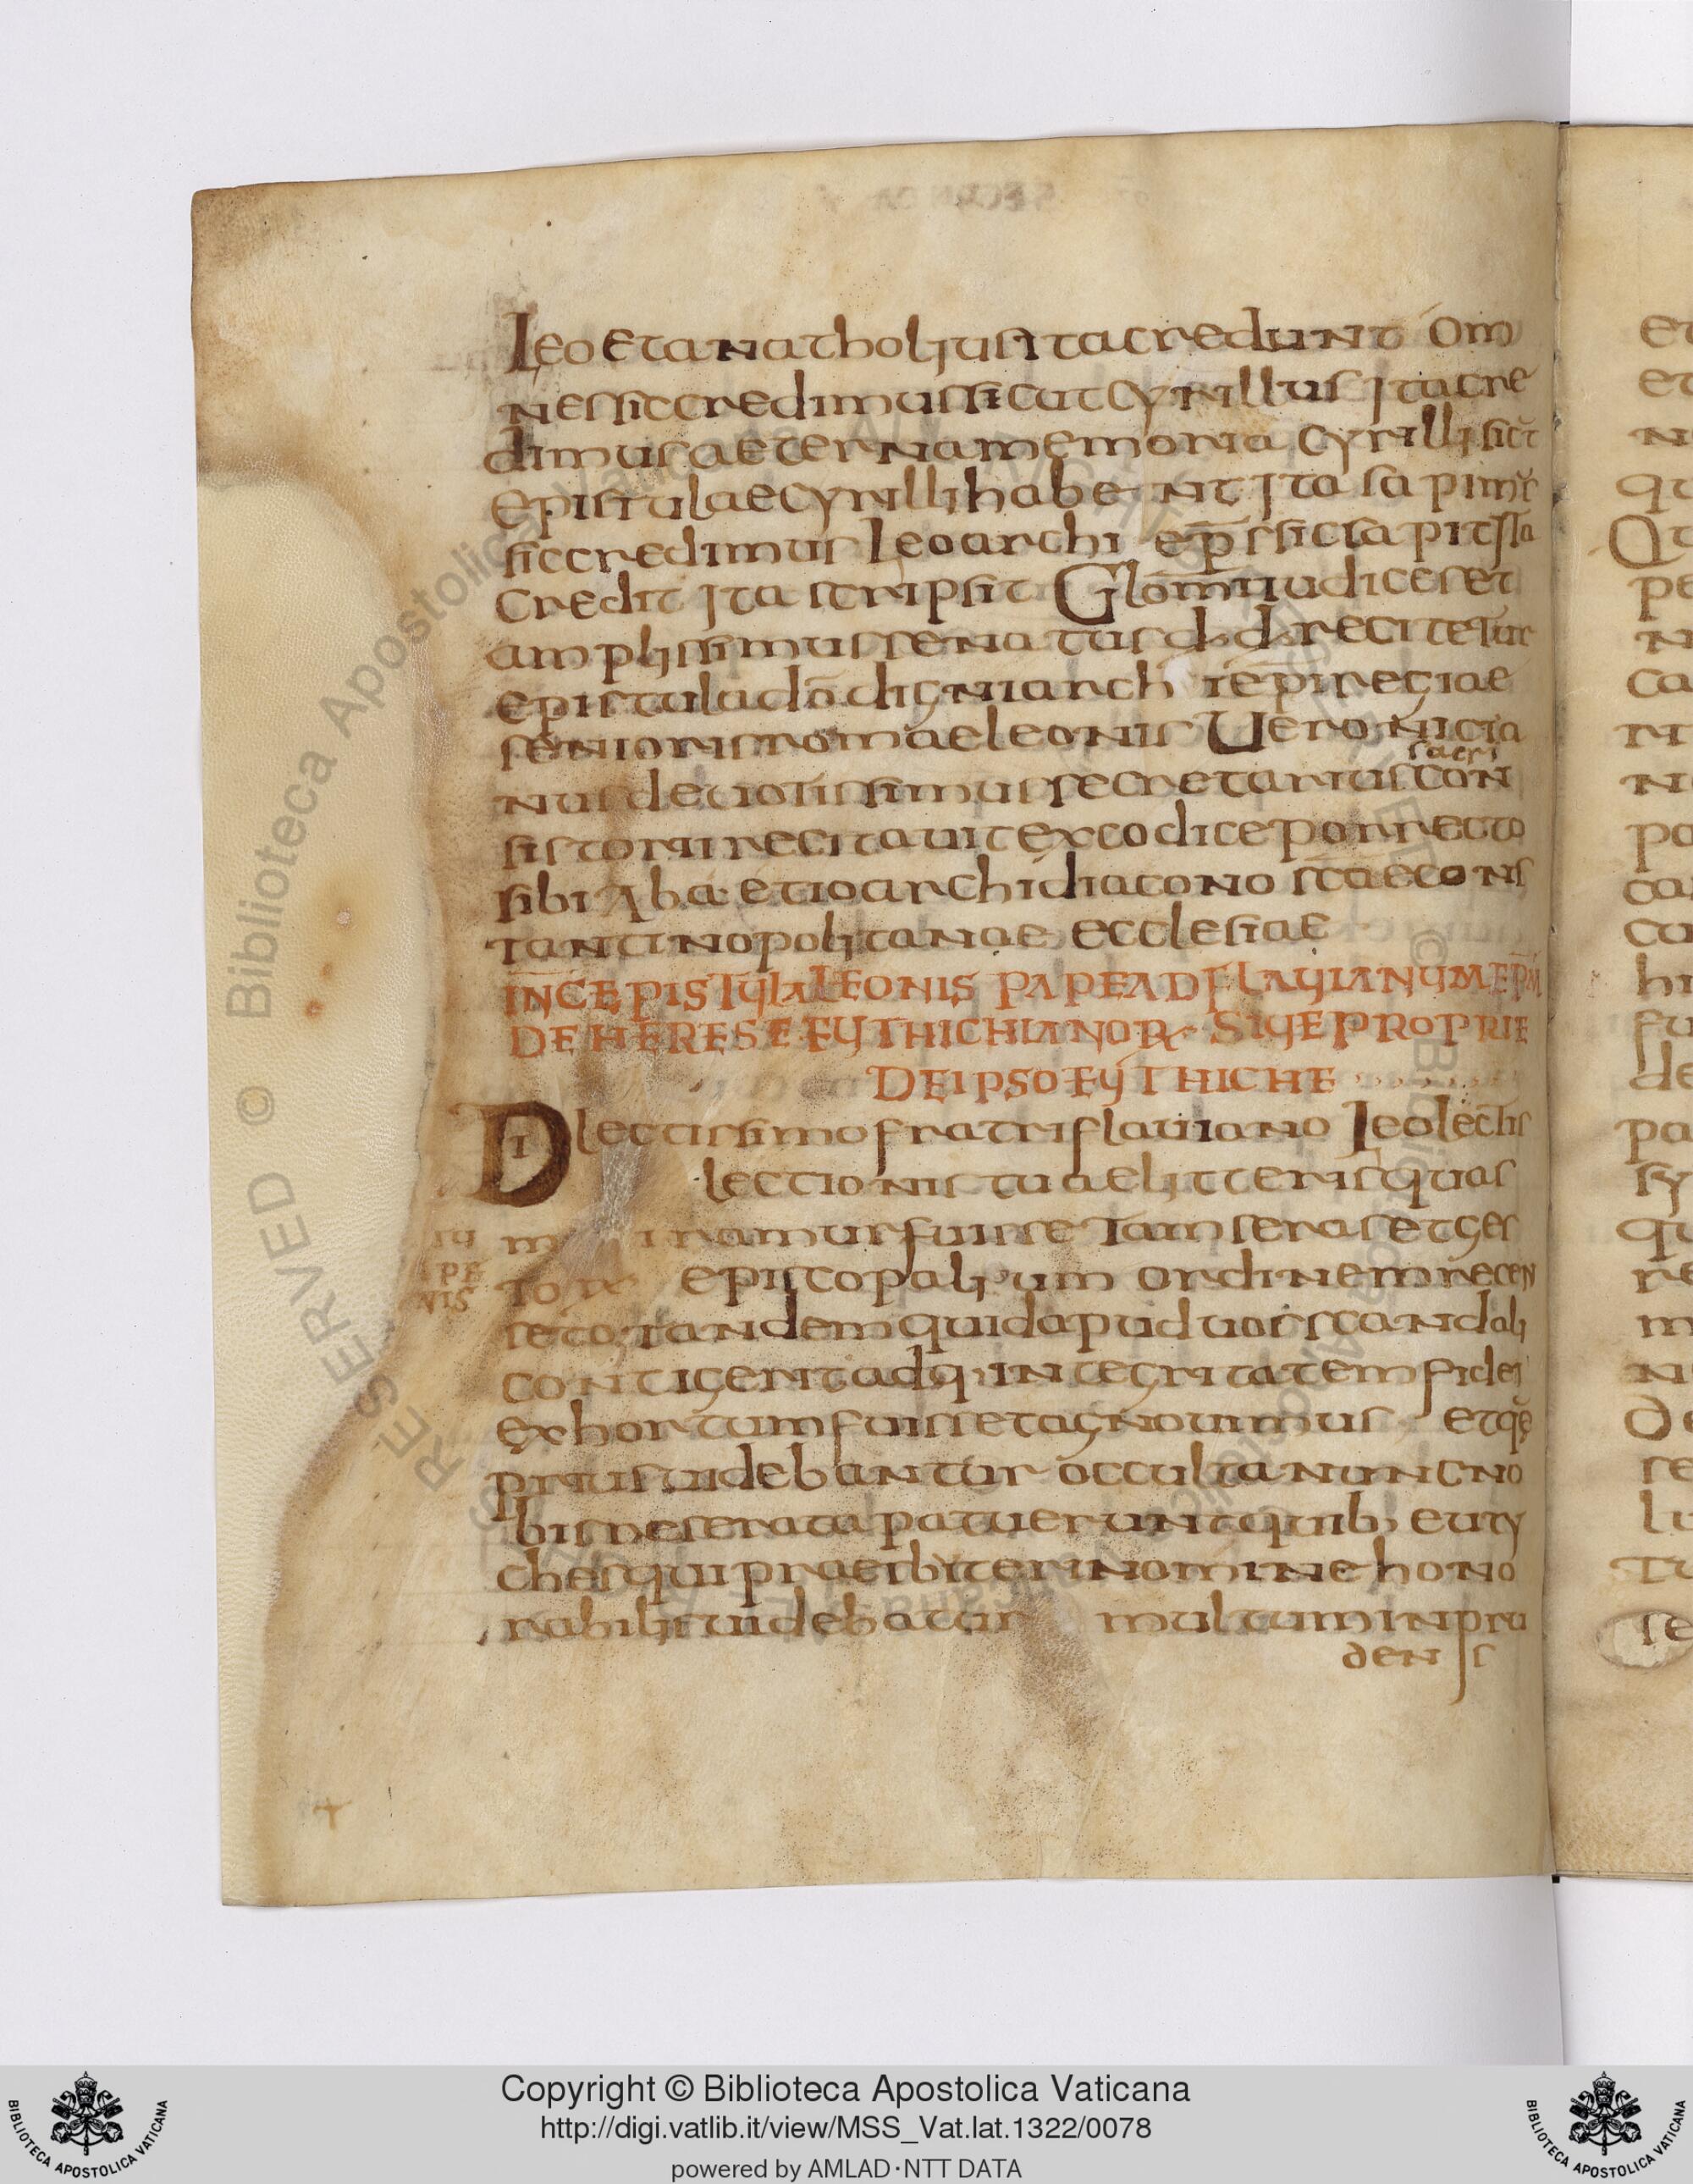 Leo et anatholius ita credunt om
nes sic credimus sicut cyrillus ita cre
dimus aeterna memoria cyrilli sicut
epistulae cyrilli habent ita sapimus
sic credimus Leo archi eps sic sapit ita
credit ita scripsit Glom iudices et
amplissimus senatus dd recitetur
epistula do digni archiepi regiae
senioris romae leonis Ueronicia
nus deuotissimus secretarius con
sacri
sistorii recitauit ex codice porrecto
sibi Ab aetio archidiacono scae cons
tantinopolitanae ecclesiae
INC EPISTULA LEONIS PAPE AD FLAUIANUM EPM
DE HERESE EUTHICHIANOR SIUE PROPRIE
DE IPSO EUTHICHE
Dilectissimo fratri flauiano Leo lectis
lectionis tuae litteris quas
ramur fuisse Tam seras et ges
to episcopalium ordinem recen
seto tandem quid apud uos scandali
contigerit adq; integritatem fidei
exhortum fuisset agnouimus et que
prius uidebantur occulta nunc no
bis reserata patuerunt quib; euty
ches qui praesbiteri nomine hono
rabilis uidebatur multum inpru
dens
PE
NIS
Copyright © Biblioteca Apostolica Vaticana
http://digi.vatlib.it/view/MSS_Vat.lat.1322/0078
powered by AMLAD·NTT DATA
BIBLIOTECA APOSTOLICA VATICANA
BIBLIOTECA APOSTOLICA VATICANA